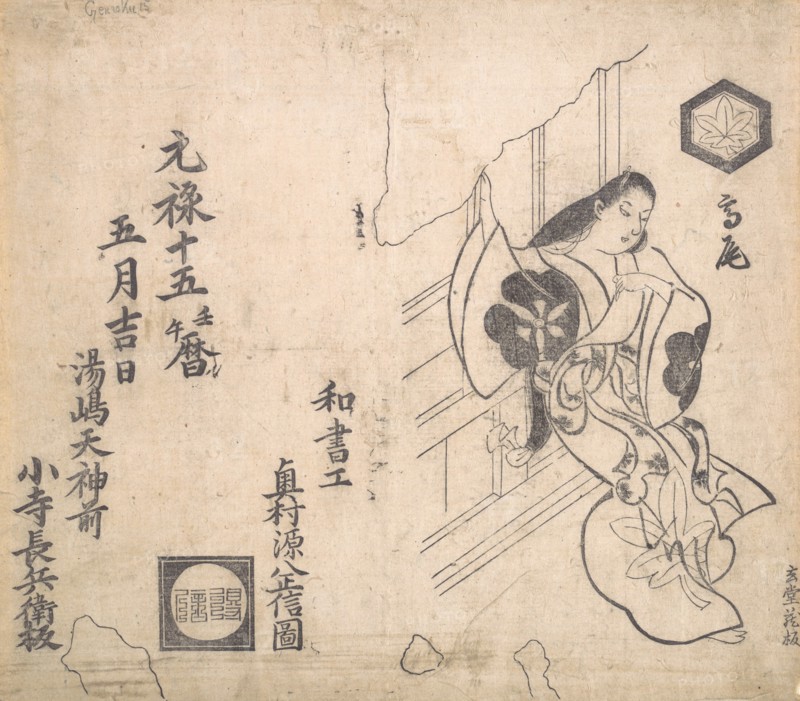 Genroku 15
高尾
玄堂蔵板
和畫工
奥村源八政信圖
元禄十五壬午暦
五月吉日
湯嶋天神前
小寺長兵衛板